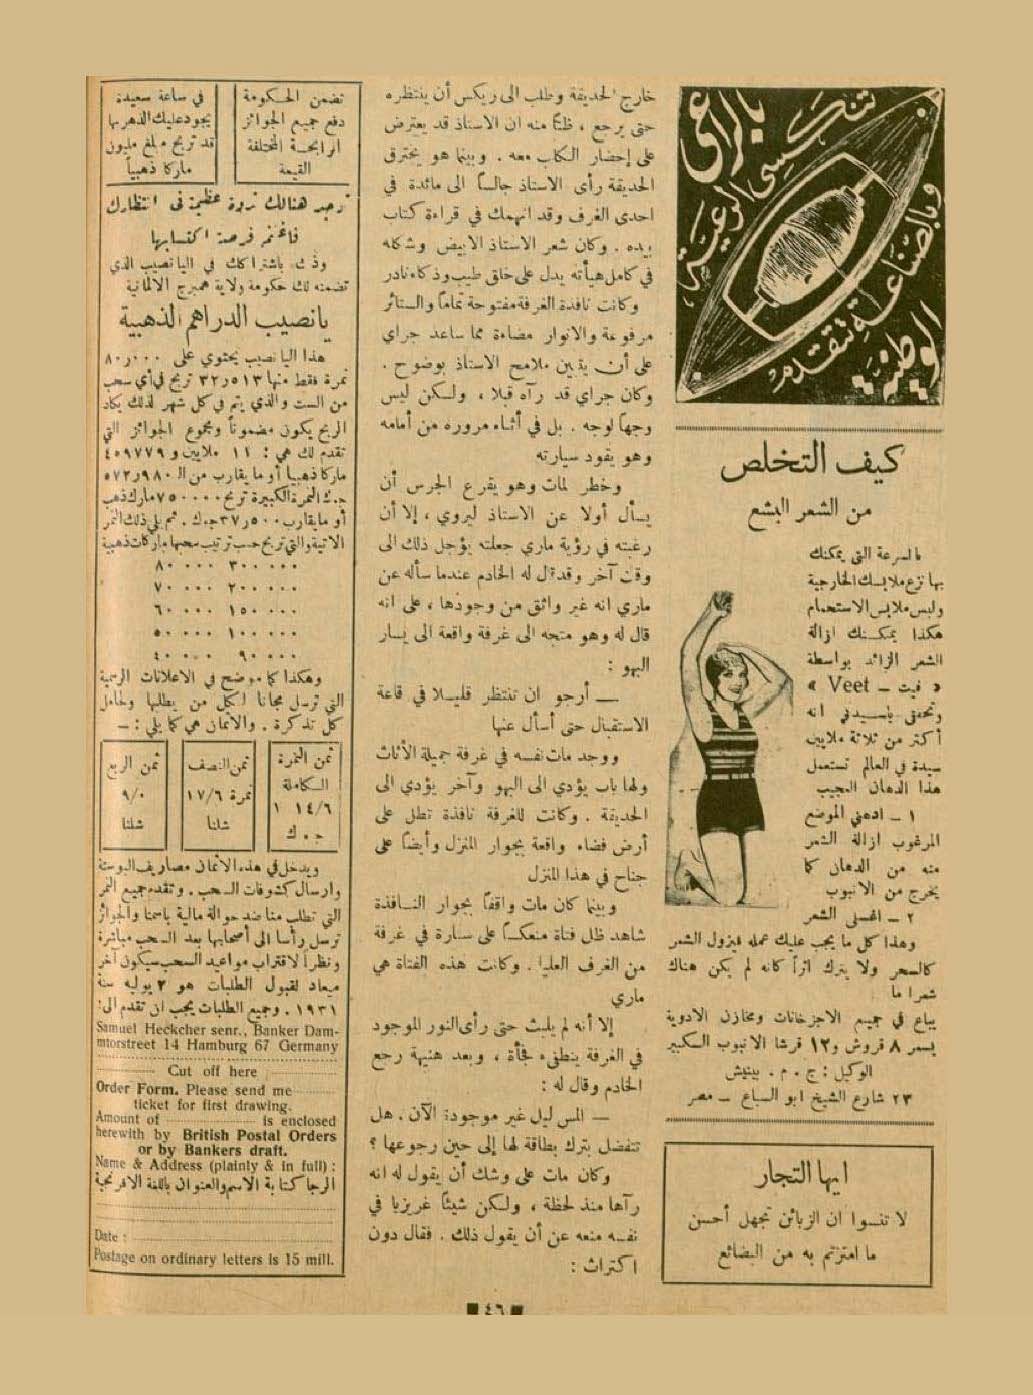 بالراعى
تكتسى الوعية
وبالصناعة تتقدم
الوطنية
كيف التخلص
من الشعر البشع
بالسرعة التى يمكنك
بها نزع ملابسك الخارجية
ولبس ملابس الاستحمام
هكذا يمكنك ازالة
الشعر الزائد بواسطة
« فيت – Veet »
وتحققى ياسيدتى انه
أكثر من ثلاثة ملايين
سيدة في العالم تستعمل
هذا الدهان العجيب
١ – ادهنى الموضع
المرغوب ازالة الشعر
منه من الدهان كما
يخرج من الانبوب
٢ – اغسلى الشعر
وهذا كل ما يجب عليك عمله فيزول الشعر
كالسحر ولا يترك اثراً كانه لم يكن هناك
شعر ا ما
يباع في جميع الاجزخانات ومخازن الادوية
بسعر ٨ قروش و١٢ قرشا الانبوب الكبير
الوكيل : ج . م . بينيش
٢٣ شارع الشيخ ابو السباع – مصر
ايها التجار
لا تنسوا ان الزبائن تجهل أحسن
ما امتزتم به من البضائع
خارج الحديقة وطلب الى ريكس أن ينتظره
حتى يرجع ، ظناً منه ان الاستاذ قد يعترض
على إحضار الكلب معه . وبينما هو يخترق
الحديقة رأى الاستاذ جالساً الى مائدة في
احدى الغرف وقد انهمك في قراءة كتاب
بيده . وكان شعر الاستاذ الابيض وشكله
في كامل هيأته يدل على خلق طيب وذكاء نادر
وكانت نافذة الغرفة مفتوحة تماماً والستائر
مرفوعة والانوار مضاءة مما ساعد جراي
على أن يتبين ملامح الاستاذ بوضوح .
وكان جراي قد رآه قبلا ، ولكن ليس
وجهاً لوجه . بل في أثناء مروره من أمامه
وهو يقود سيارته
وخطر لمات وهو يقرع الجرس أن
يسأل أولا عن الاستاذ ليروي ، إلا أن
رغبته في رؤية ماري جعلته يؤجل ذلك الى
وقت آخر وقد قال له الخادم عندما سأله عن
ماري انه غير واثق من وجودها ، على انه
قال له وهو متجه الى غرفة واقعة الى يسار
البهو :
— أرجو ان تنتظر قليلا في قاعة
الاستقبال حتى أسأل عنها
ووجد مات نفسه في غرفة جميلة الأثاث
ولها باب يؤدي الى البهو وآخر يؤدي الى
الحديقة . وكانت للغرفة نافذة تطل على
أرض فضاء واقعة بجوار المنزل وأيضاً على
جناح في هذا المنزل
وبينما كان مات واقفاً بجوار النافذة
شاهد ظل فتاة منعكساً على ستارة في غرفة
من الغرف العليا . وكانت هذه الفتاة هي
ماري
إلا أنه لم يلبث حتى رأى النور الموجود
في الغرفة ينطفىء فجأة ، وبعد هنيهة رجع
الخادم وقال له :
— المس ليل غير موجودة الآن . هل
تتفضل بترك بطاقة لها إلى حين رجوعها ؟
وكان مات على وشك أن يقول له انه
رآها منذ لحظة ، ولكن شيئاً غريزيا في
نفسه منعه عن أن يقول ذلك . فقال دون
اكتراث :
تضمن الحكومة
دفع جميع الجوائز
الرابحة المختلفة
القيمة
في ساعة سعيدة
يجود عليك الدهر بها
قد تربح مبلغ مليون
ماركا ذهبياً
توجد هنالك ثروة عظيمة فى انتظارك
فاغتنم فرصة اكتسابها
وذلك باشتراكك في اليانصيب الذي
تضمنه لك حكومة ولاية همبرج الالمانية
يانصيب الدراهم الذهبية
هذا اليانصيب يحتوي على ٨٠٫٠٠٠
نمرة فقط منها ٣٢٫٥١٣ تربح في أي سحب
من الست والذي يتم في كل شهر لذلك يكاد
الربح يكون مضموناً ومجموع الجوائز التي
تقدم لك هي : ١١ ملايين و ٤٥٩٧٧٩
ماركا ذهبيا أو ما يقارب من الـ ٥٧٢٫٩٨٠
ج.ك النمرة الكبيرة تربح ٧٥٠٠٠٠ مارك ذهب
أو ما يقارب ٣٧٫٥٠٠ ج.ك . ثم يلي ذلك النمر
الاتية والتي تربح حسب ترتيب سحبها ماركات ذهبية
٣٠٠ ٠٠٠ ٨٠ ٠٠٠
٢٠٠ ٠٠٠ ٧٠ ٠٠٠
١٥٠ ٠٠٠ ٦٠ ٠٠٠
١٠٠ ٠٠٠ ٥٠ ٠٠٠
٩٠ ٠٠٠ ٤٠ ٠٠٠
وهكذا كما موضح في الاعلانات الرسمية
التي ترسل مجانا لكل من يطلبها ولحامل
كل تذكرة . والاثمان هي كما يلي : –
ثمن النمرة
الكاملة
١ ١٤/٦
ج . ك
ثمن النصف
نمرة ١٧/٦
شلنا
ثمن الربع
٩/٠
شلنا
ويدخل في هذه الاثمان مصاريف البوستة
وارسال كشوفات السحب . وتقدم جميع النمر
التي تطلب منا ضد حوالة مالية باسمنا والجوائز
ترسل رأسا الى أصحابها بعد السحب مباشرة
ونظراً لاقتراب مواعيد السحب سيكون آخر
ميعاد لقبول الطلبات هو ٢ يوليه سنة
١٩٣١ . وجميع الطلبات يجب ان تقدم الى :
Samuel Heckcher senr., Banker Dam-
mtorstreet 14 Hamburg 67 Germany
Cut off here
Order Form. Please send me
ticket for first drawing.
Amount of is enclosed
herewith by British Postal Orders
or by Bankers draft.
Name & Address (plainly & in full) :
الرجا كتابة الاسم والعنوان باللغة الافرنجية
Date :
Postage on ordinary letters is 15 mill.
٤٦